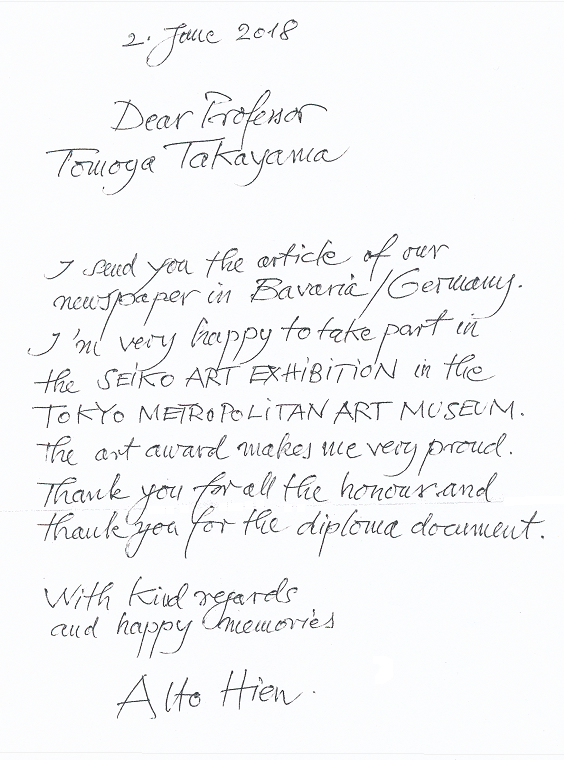 2. June 2018
Dear Professor
Tomoya Takayama
I send you the article of our
newspaper in Bavaria/Germany.
I'm very happy to take part in
the SEIKO ART EXHIBITION in the
TOKYO METROPOLITAN ART MUSEUM.
The art award makes me very proud.
Thank you for all the honour and
thank you for the diploma document.
With kind regards
and happy memories
Alto Hien.